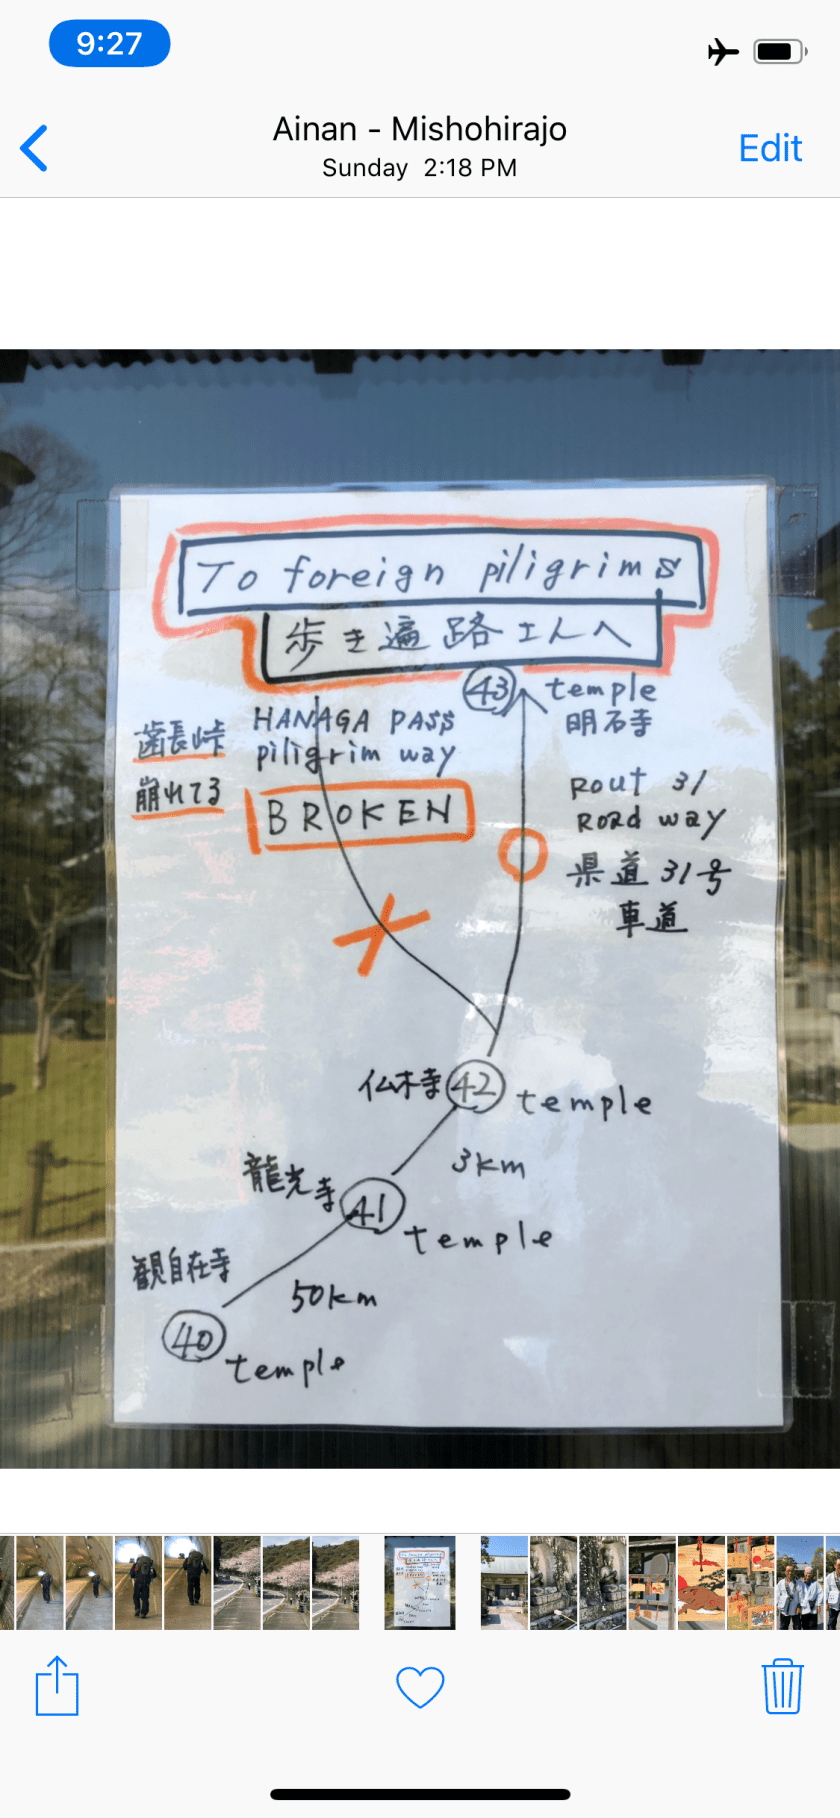 9:27
Ainan - Mishohirajo
Sunday 2:18 PM
Edit
To foreign piligrims
歩き遍路さんへ
43 temple
明石寺
HANAGA PASS
piligrim way
歯長峠
崩れてる
BROKEN
Rout 31
Road way
県道31号
車道
仏木寺 42 temple
3km
龍光寺 41 temple
50km
観自在寺
40 temple